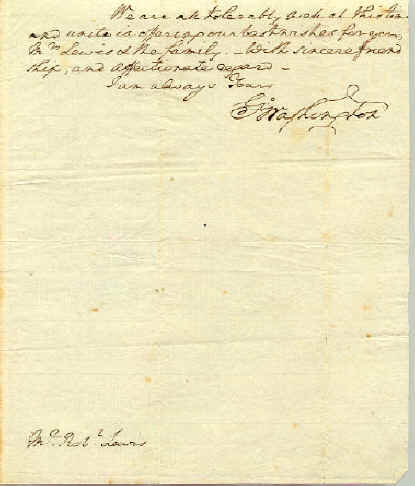 We are all tolerably well at this time
and unite in offering our best wishes for you,
Mrs Lewis & the family. – With sincere friend
ship, and affectionate regard –
I am always Yours
Go: Washington
Mr. Robt Lewis